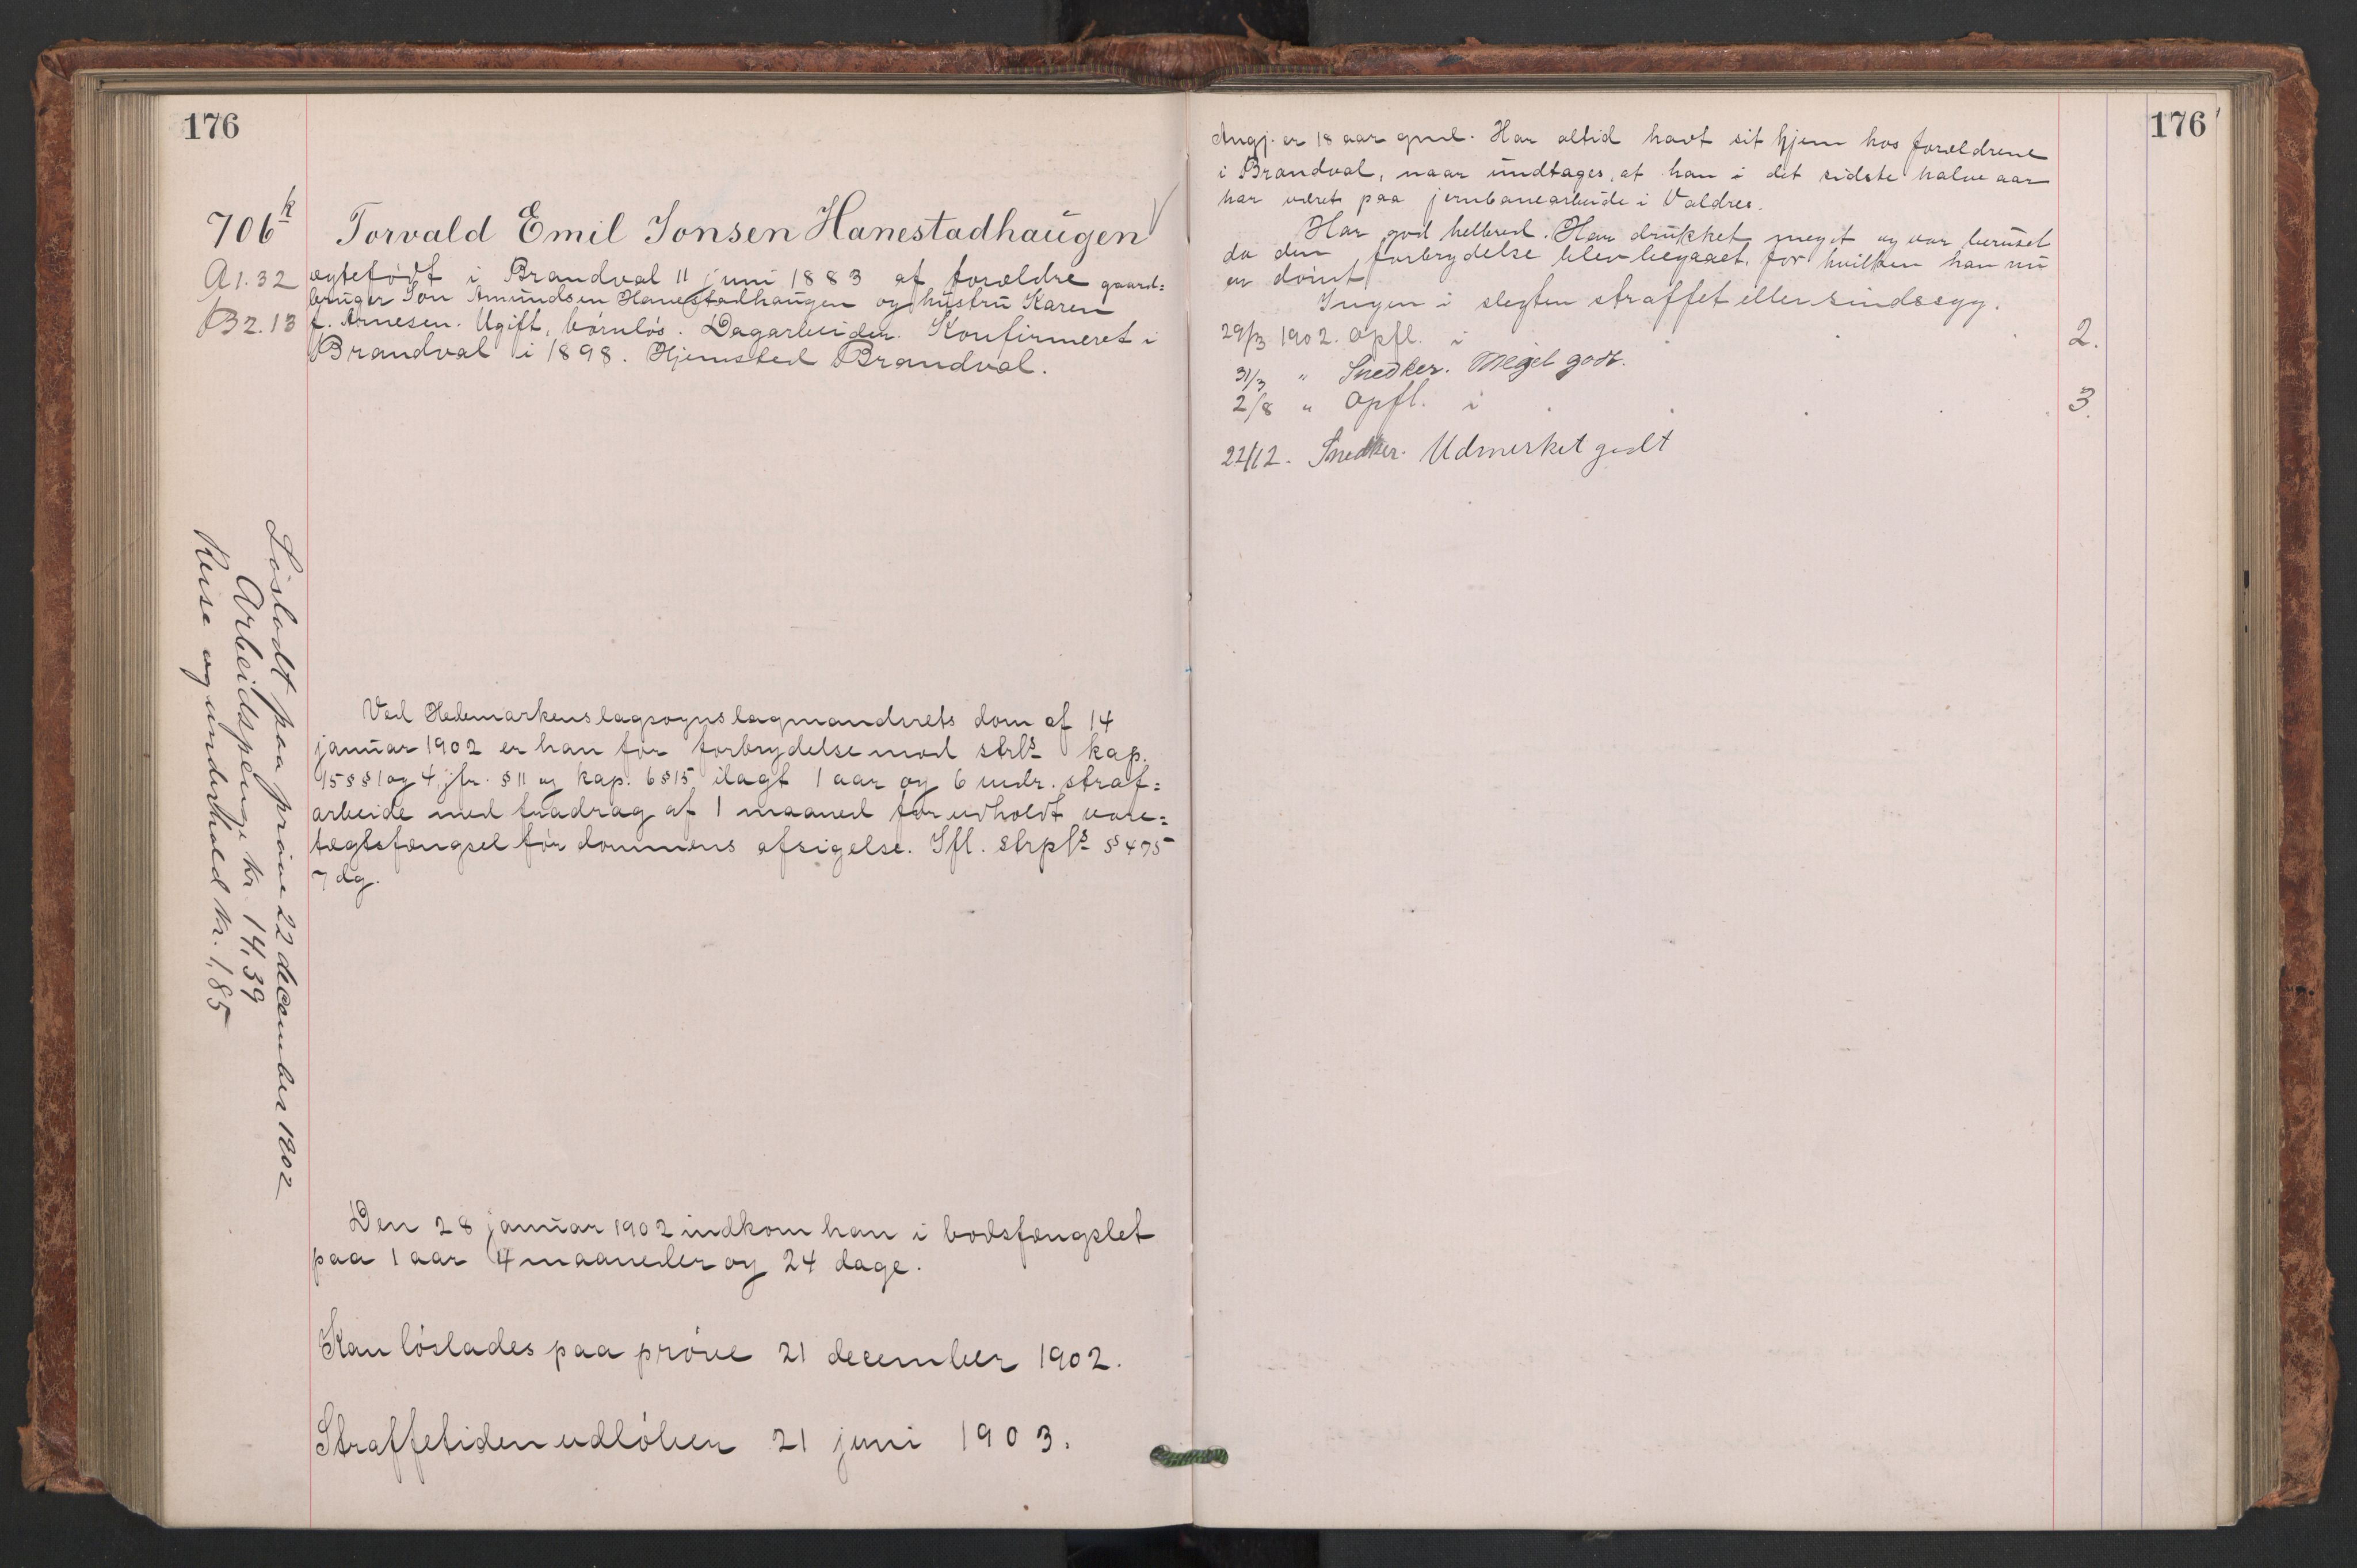 176
706 k
Torvald Emil Jonsen Hanestadhaugen
A1.32
B2.13
egtefødt i Brandval 11 juni 1883 af forældre gaard=
bruger Jon Amundsen Hanestadhaugen og hustru Karen
f. Arnesen. Ugift, børnløs. Dagarbeider. Konfirmeret i
Brandval i 1898. Hjemsted Brandval.
Løsladt paa prøve 22 december 1902
Arbeidspenge kr. 14,39
Reise og underhold kr. 1,85
Ved Hedemarkens lagsogns lagmandsrets dom af 14
januar 1902 er han for forbrydelse mod strls kap.
15 §§ 1 og 4, jfr. § 11 og kap. 6 § 15 ilagt 1 aar og 6 mdr. straf=
arbeide med fradrag af 1 maaned for udholdt vare=
tægtsfængsel før dommens afsigelse. Ifl. strpls § 475
7 dg.
Den 28 januar 1902 indkom han i bodsfængslet
paa 1 aar 4 maaneder og 24 dage.
Kan løslades paa prøve 21 december 1902.
Straffetiden udløber 21 juni 1903.
176
Angj. er 18 aar gml. Har altid havt sit hjem hos forældrene
i Brandval, naar undtages, at han i det sidste halve aar
har været paa jernbanearbeide i Valdres.
Har god helbred. Har drukket meget og var beruset
da den forbrydelse blev begaaet, for hvilken han nu
er dømt.
Ingen i slegten straffet eller sindssyg.
29/3 1902. Opfl. i . . . 2.
31/3 " Snedker. Meget godt.
2/8 " Opfl. i . . . . . 3.
22/12. Snedker. Udmerket godt